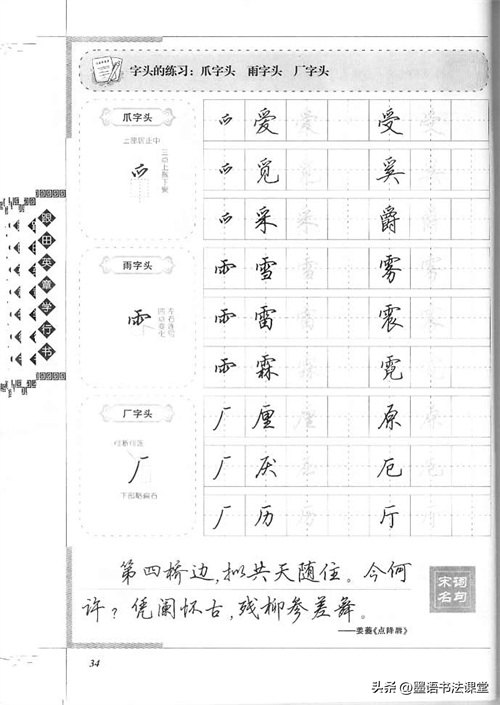 字头的练习：爪字头 雨字头 厂字头
爪字头
上撇居正中
三点上靠下紧
爫 爱 爱 受 受
爫 觅 觅 奚
爫 采 采 爵
雨字头
左右连写
四点变化
雨 雪 雪 雾 雾
雨 雷 雷 震
雨 霖 霖 霓
厂字头
下部略偏右
厂 厘 厘 原 原
厂 厌 厌 厄
厂 历 历 厅
跟田英章学行书
第四桥边，拟共天随住。今何
许？凭阑怀古，残柳参差舞。
——姜蕃《点降脣》
宋词
名句
34
头条@墨语书法课堂